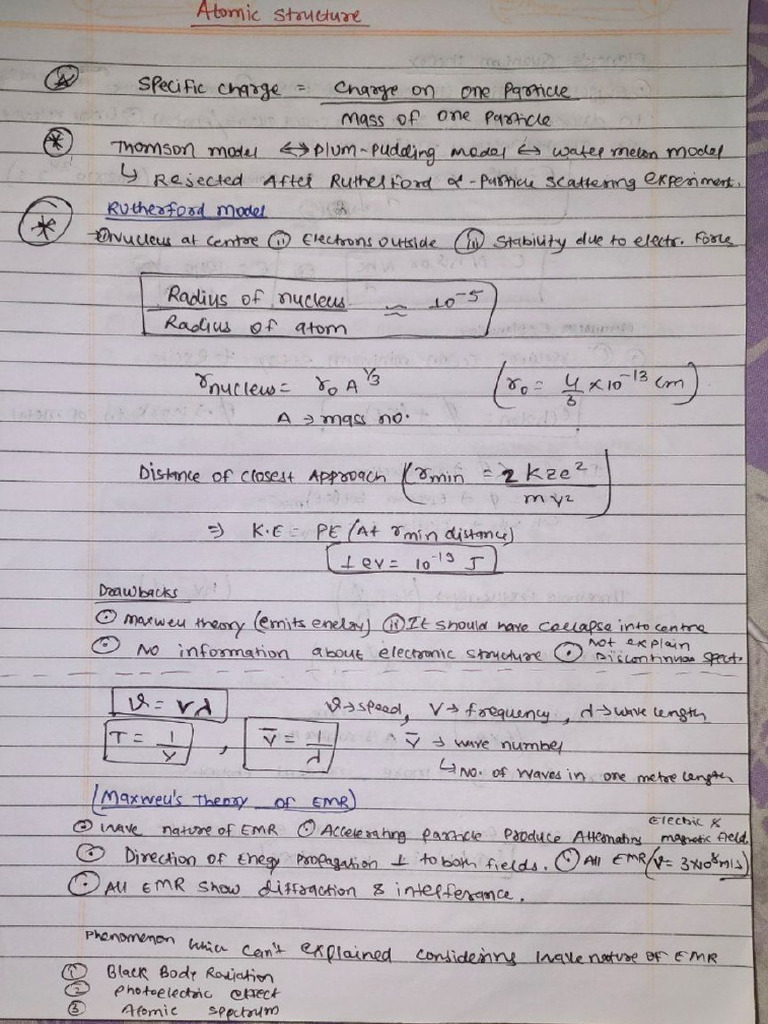 Atomic structure
Specific charge = Charge on one particle / mass of one particle
Thomson model ↔ plum-pudding model ↔ water melon model
↳ Rejected After Rutherford α-particle scattering experiment.
Rutherford model
→ ① Nucleus at centre ② Electrons outside ③ Stability due to electr. Force
Radius of nucleus / Radius of atom ≈ 10⁻⁵
r nucleus = r₀ A^1/3 (r₀ = 4/3 × 10⁻¹³ cm)
A → mass no.
Distance of closest Approach (rmin = 2 kze² / mv²)
⇒ K.E = PE (At rmin distance)
1 ev = 10⁻¹⁹ J
Drawbacks
⊙ maxwell theory (emits energy) ⓘⓘ It should have collapse into centre
⊙ No information about electronic structure ⊙ Not explain Discontinuous spect.
ϑ = νλ ϑ → speed, ν → frequency, λ → wave length
T = 1/ν , ν̄ = 1/λ ν̄ → wave number
↳ No. of waves in one metre length
(Maxwell's Theory of EMR)
⊙ wave nature of EMR ⊙ Accelerating particle produce Alternating Electric & magnetic field
⊙ Direction of Enegy propagation ⊥ to both fields. ⊙ All EMR (V = 3×10⁸ m/s)
⊙ All EMR show diffraction & interferance.
Phenomenon which can't explained considering wave nature of EMR
① Black Body Radiation
② photoelectric effect
③ Atomic spectrum